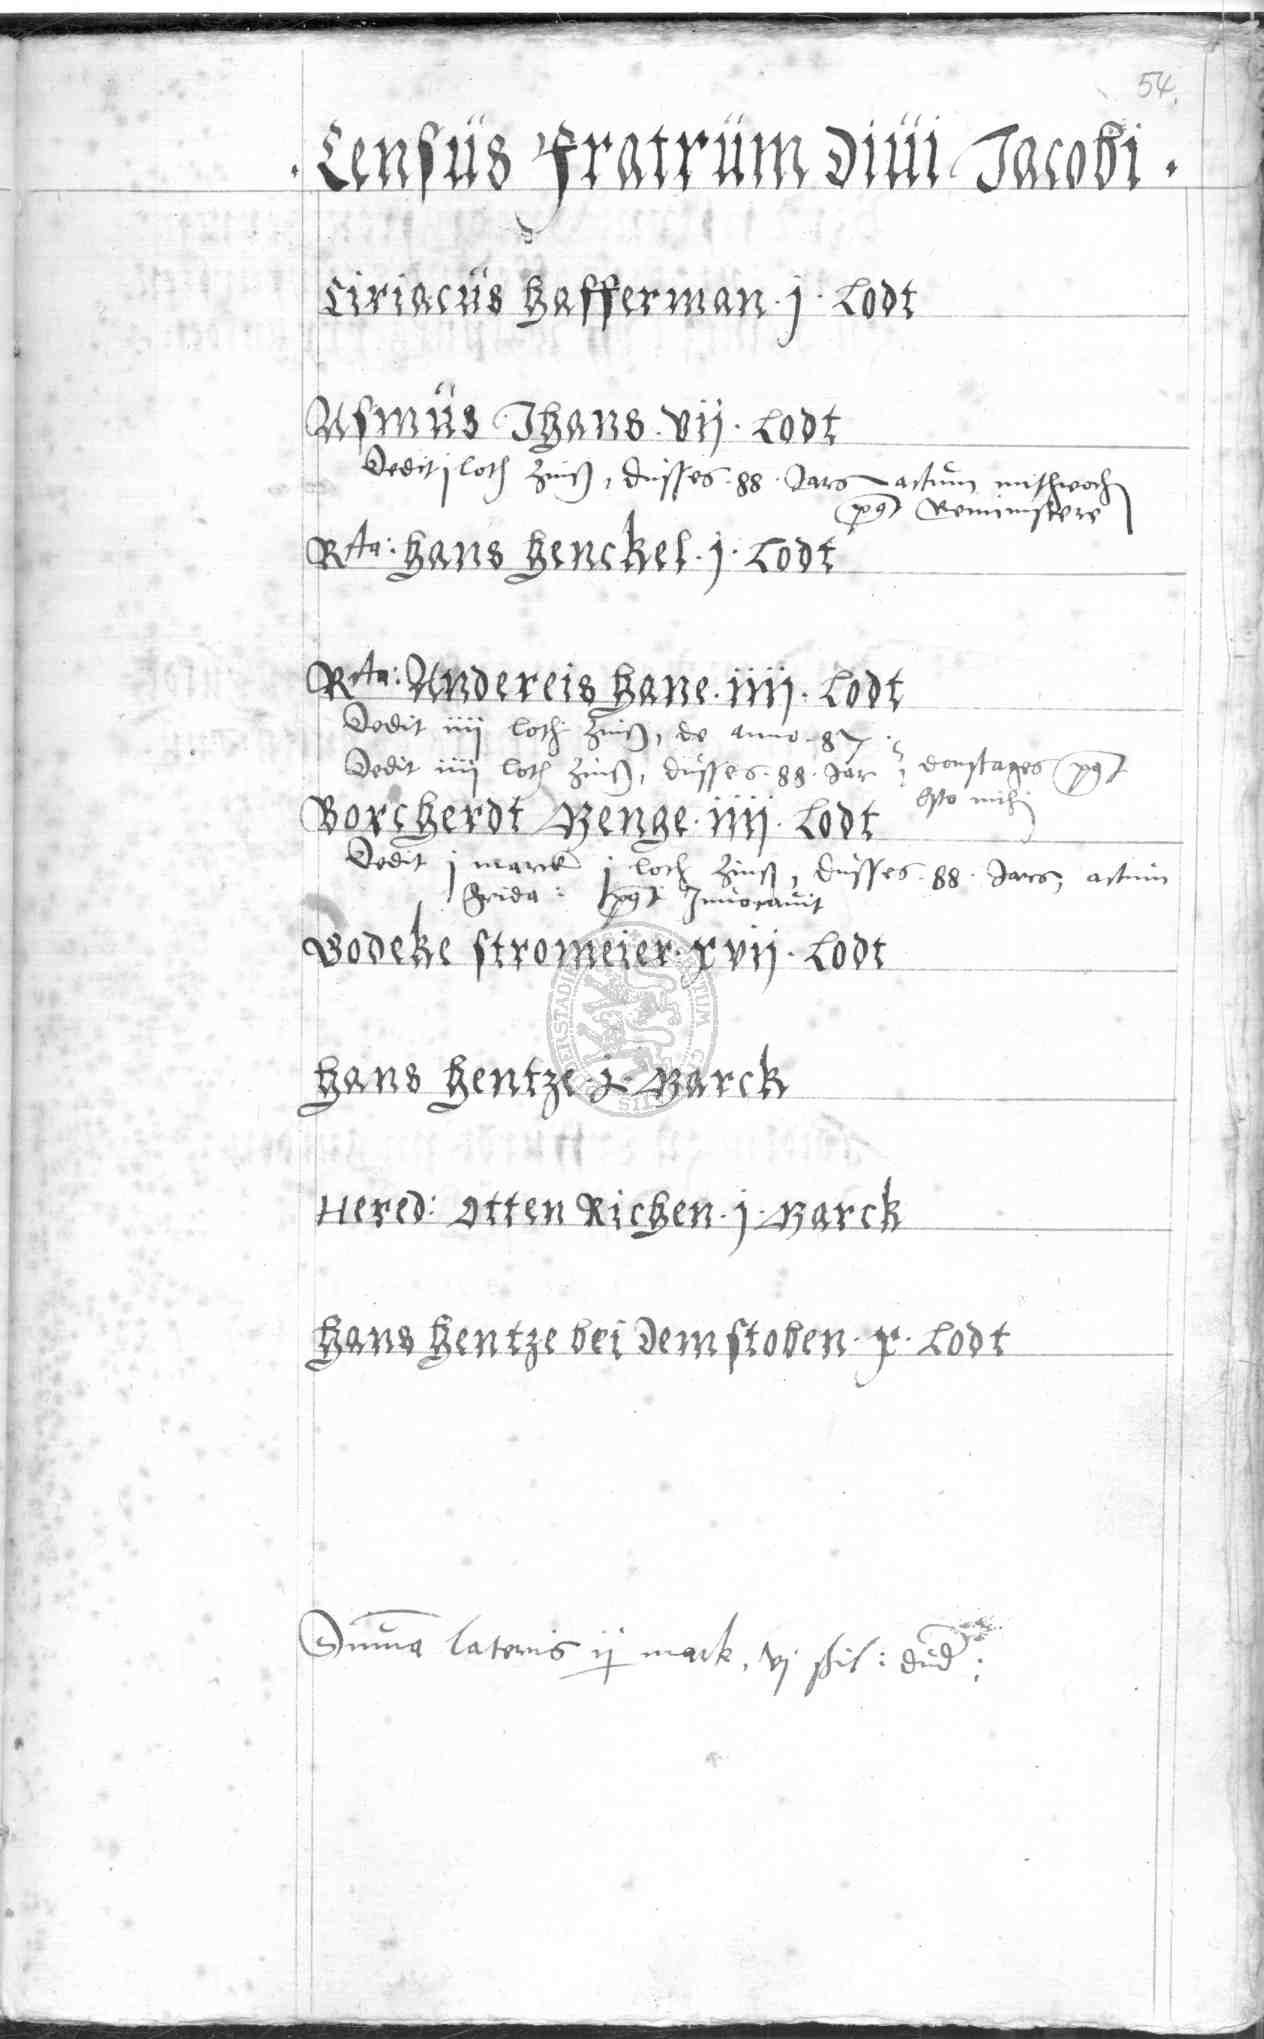 54.
. Censüs Fratrüm Diüi Jacobi .
Ciriacüs Hafferman . j . Lodt
Asmüs Jhans . vij . Lodt
Dedit j loth Zinß, düsses . 88 . Jars actum mithwoch
pꝰt Reministere
Rta: Hans Henckel . j . Lodt
Rta: Andereis Hane . iiij . Lodt
Dedit iiij loth Zinß, de anno . 87 .
Dedit iiij loth Zinß, düsses . 88 . Jar donstages pꝰt
Esto mihi
Borcherdt Menge . iiij . Lodt
Dedit j marck j loth Zinß, düsses . 88 . Jars, actum
Frida: pꝰt Inuocauit
Bodeke Stromeier . xvij . Lodt
Hans Hentze . j . Marck
Hered: Otten Richen . j . Marck
Hans Hentze bei dem stoben . x . Lodt
Suma lateris ij mark, vj ßil: